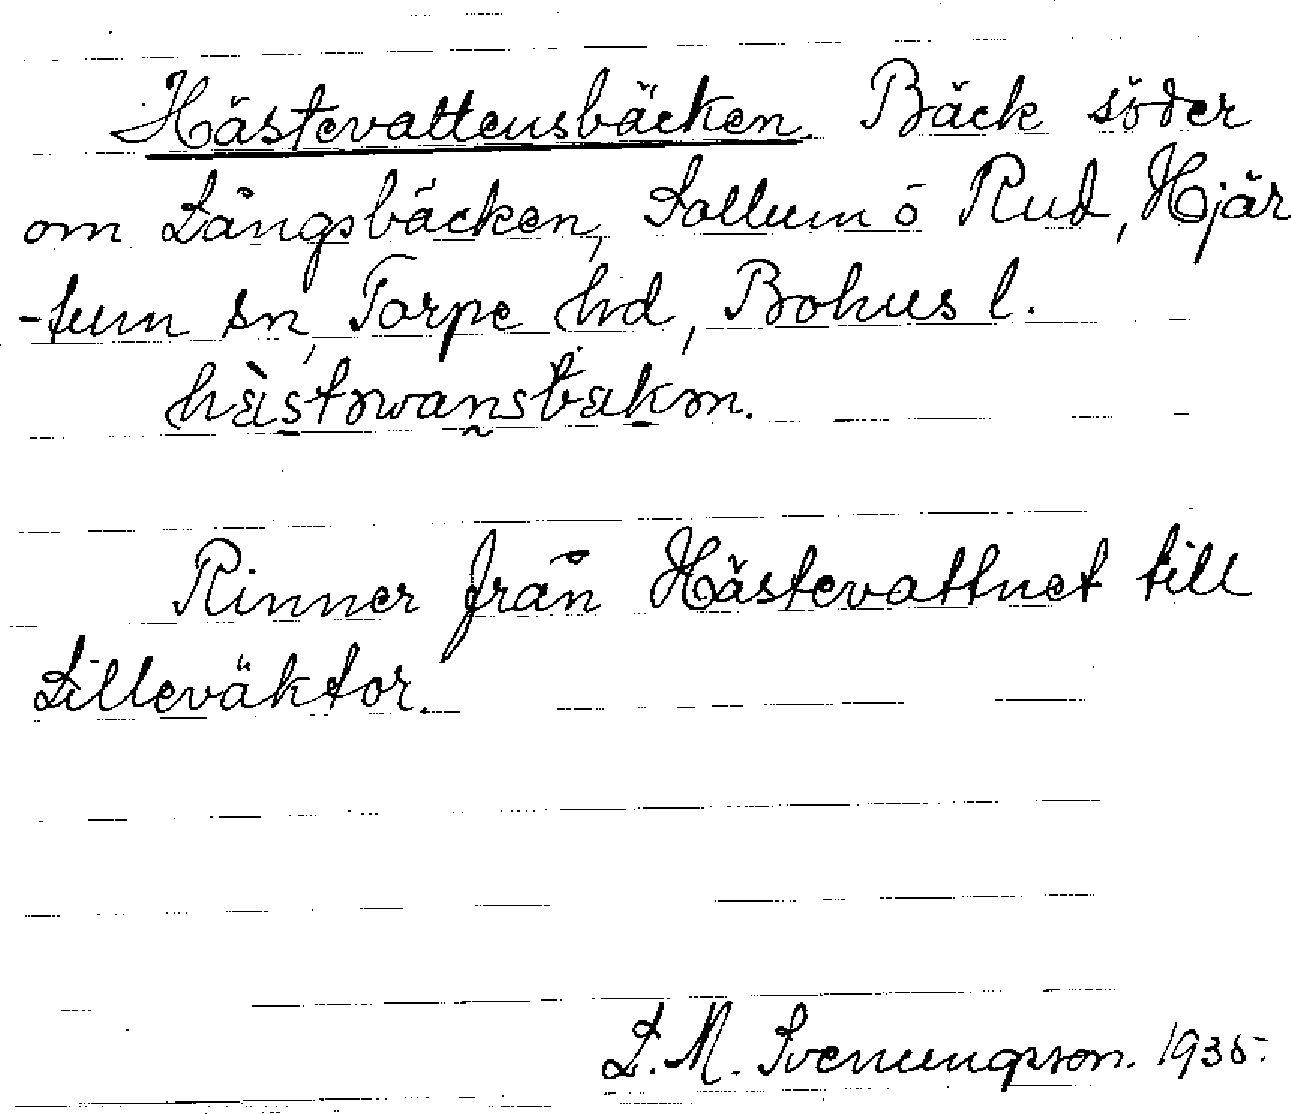 Hästevattensbäcken. Bäck söder
om Långsbäcken, Sollum ö Rud, Hjär
-tum sn, Torpe hd, Bohus l.
hàstəvansbäkən.
Rinner från Hästevattnet till
Lilleväktor.
L. M. Svenungson. 1935.